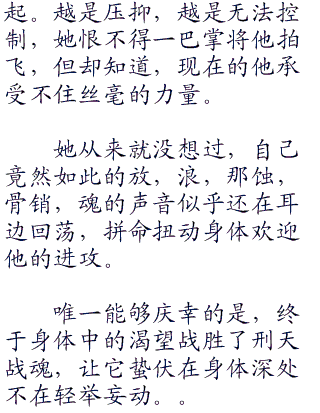 起。越是压抑，越是无法控
制，她恨不得一巴掌将他拍
飞，但却知道，现在的他承
受不住丝毫的力量。
她从来就没想过，自己
竟然如此的放，浪，那蚀，
骨销，魂的声音似乎还在耳
边回荡，拼命扭动身体欢迎
他的进攻。
唯一能够庆幸的是，终
于身体中的渴望战胜了刑天
战魂，让它蛰伏在身体深处
不在轻举妄动。。